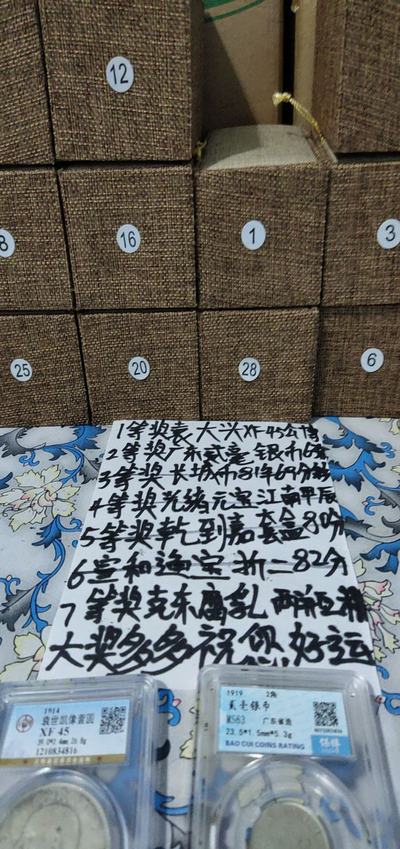 12
8
16
1
3
25
20
28
6
1等奖袁大头XF45公博
2等奖广东贰毫银币63
3等奖长城币81年69分
4等奖光绪元宝江南甲辰
5等奖乾到嘉套盒80分
6宣和通宝折二82分
7等奖克东 两
大奖多多祝您好运
1914
袁世凯像壹圆
XF 45
39.0*2.4mm 26.8g
1210834816
1919 2角
贰毫银币
MS63 广东省造
23.5*1.5mm*5.3g
BAO CUI COINS RATING
保粹